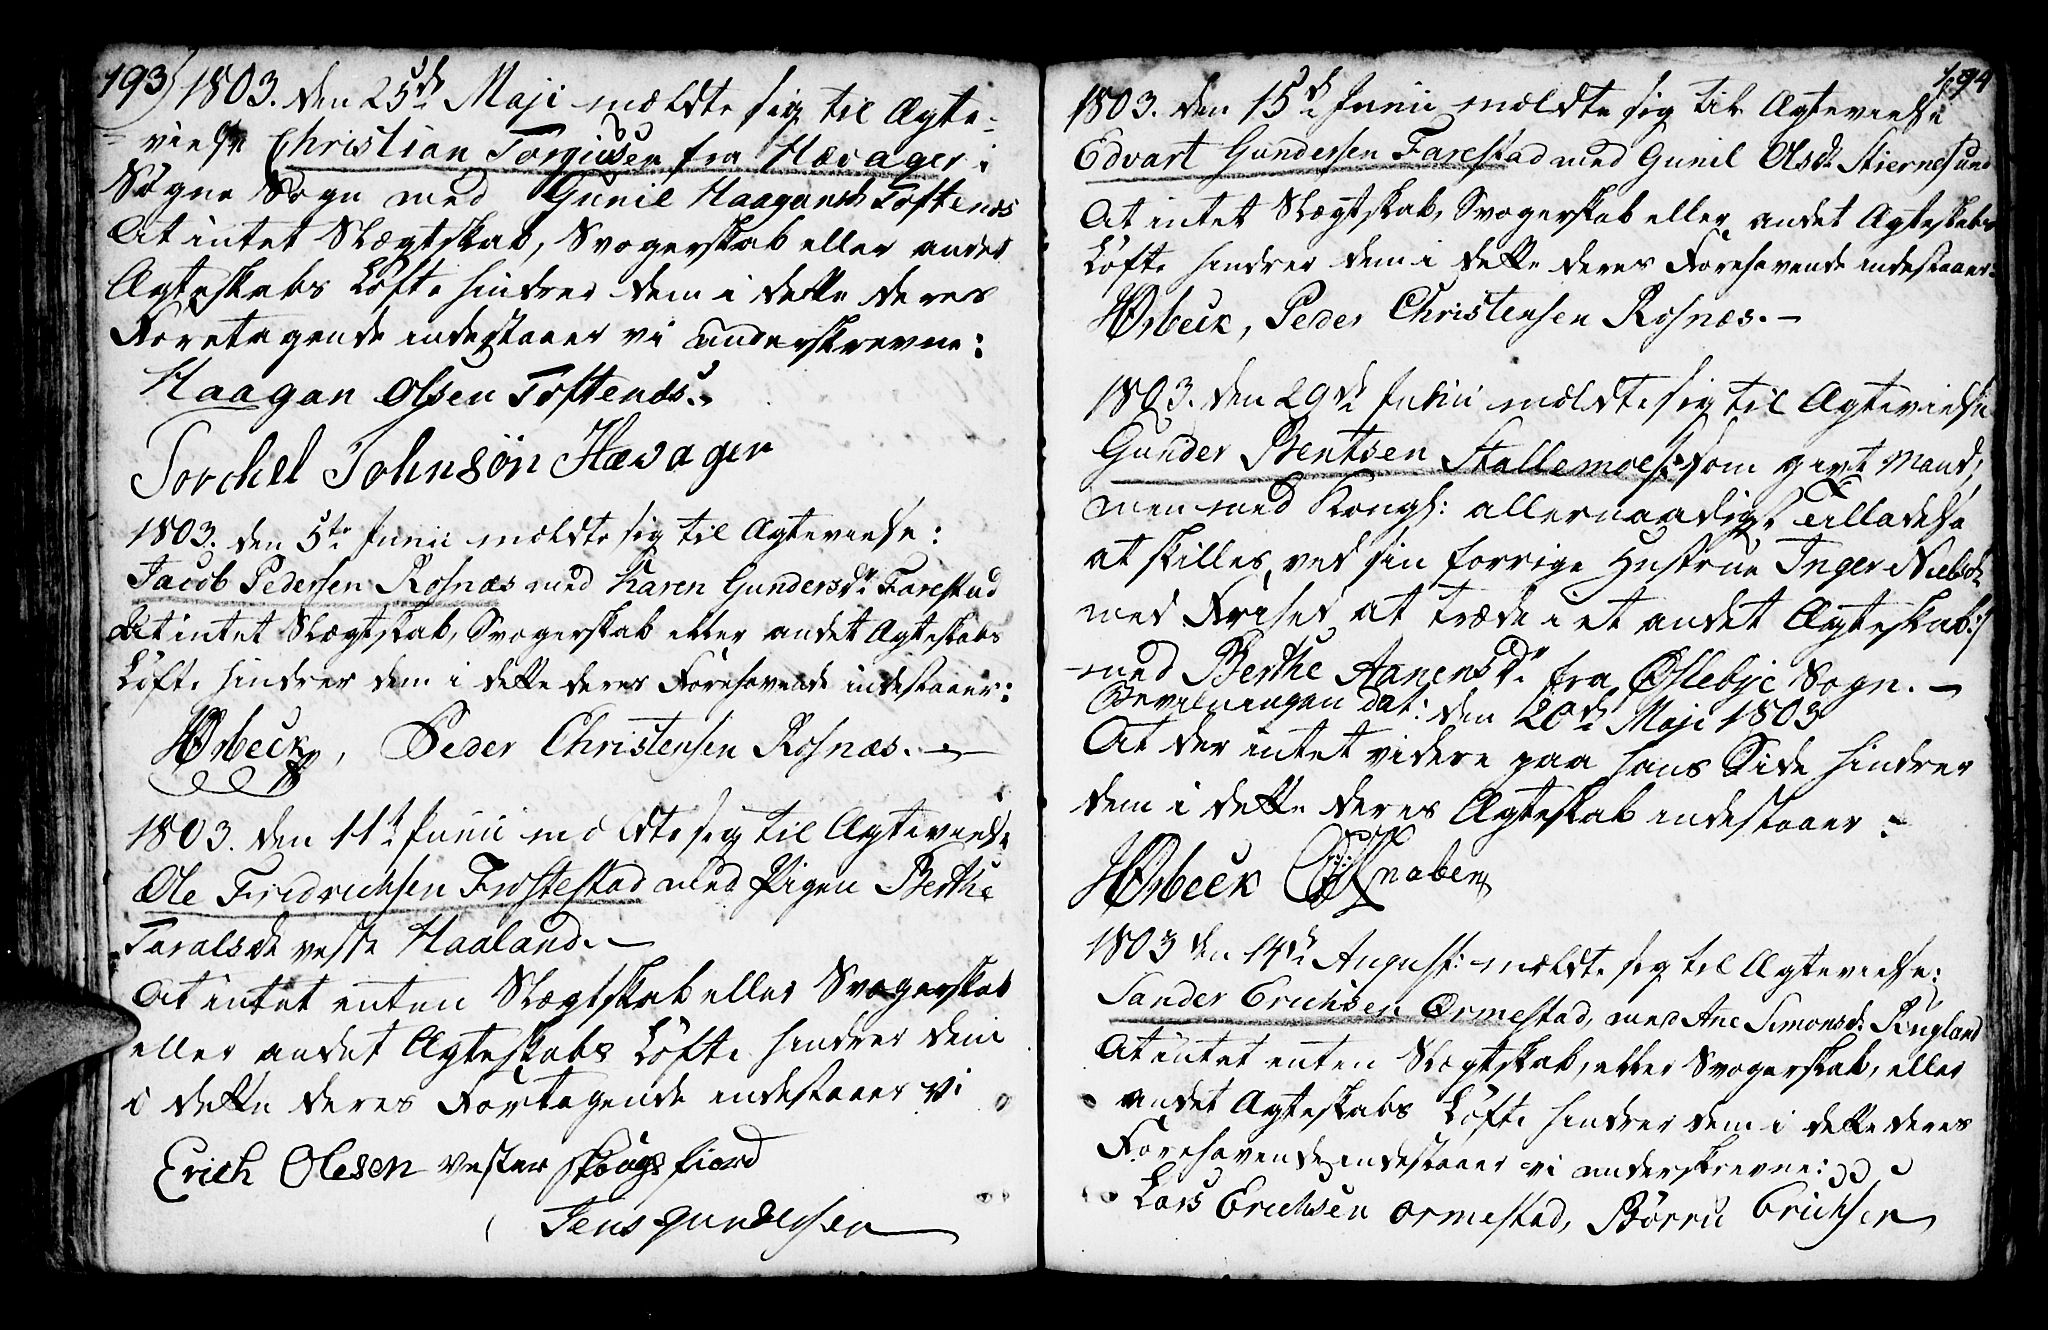 193) 1803. den 25de Maji meldte sig til Ægte-
vielse Christian Torgiusen fra Hævager i
Søgne Sogn med Gunil Haagansd Toftenes
At intet Slægtskab, Svogerskab eller andet
Ægteskabs Løfte hindrer dem i dette deres
Foretagende indestaaer vi underskrevne:
Haagan Olsen Toftenæs.
Torchel Johnsøn Hævager
1803. den 5te Junii meldte sig til Ægtevielse:
Jacob Pedersen Rosnæs med Karen Gundersdr Farestad
At intet Slægtskab, Svogerskab eller andet Ægteskabs
Løfte hindrer dem i dette deres Forehavende indestaaer:
HØrbeck, Peder Christensen Rosnæs.
1803. den 11te Junii meldte sig til Ægtevielse
Ole Fredrichsen Frøstestad med Pigen Berthe
Taralsdr vestre Haaland.
At intet enten Slægtskab eller Svogerskab
eller andet Ægteskabs Løfte hindrer dem
i dette deres Foretagende indestaaer vi
Erich Olesen vester skougsfiord
Jens gundersen
194
1803. den 15de Junii meldte sig til Ægtevielse
Edvart Gundersen Farestad med Gunil Olsdr Stiernesund
At intet Slægtskab, Svogerskab eller andet Ægteskabs
Løfte hindrer dem i dette deres Forehavende indestaaer
HØrbeck, Peder Christensen Rosnæs.
1803. den 29de Junii meldte sig til Ægtevielse
Gunder Bentsen Stallemoe /: som givt Mand,
men med Kongl: allernaadigst Tilladelse
at skilles ved sin forrige Hustrue Inger Nielsdr
med Friehed at træde i et andet Ægteskab:/
med Berthe Aanensdr fra Øslebye Sogn.
Bevilningen dat: den 20de Maji 1803
At der intet videre paa hans Side hindrer
dem i dette deres Ægteskab indestaaer:
HØrbeck Knaben
1803 den 14de August: meldte sig til Ægtevielse:
Sander Erichsen Ormestad, med Ane Simonsdr Røigland
At intet enten Slægtskab, eller Svogerskab, eller
andet Ægteskabs Løfte hindrer dem i dette deres
Forehavende indestaaer vi underskrevne:
Lars Erichsen Ormestad, Børru Erichsen